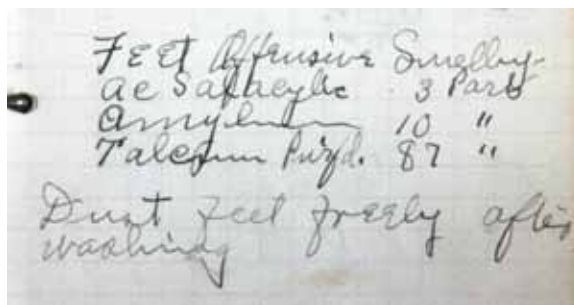 Feet Offensive Smelling
Ac Salacylic 3 Parts
Amylum 10 "
Talcum Purfd. 87 "
Dust feet freely after
washing